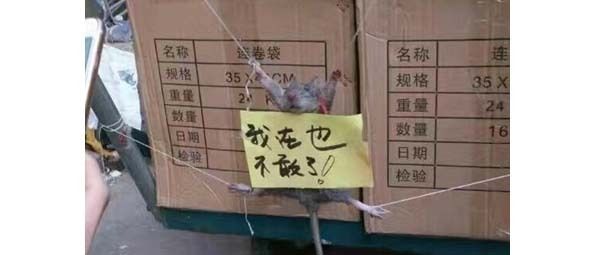 名称 连卷袋
规格 35X CM
重量 24 K
数量
日期
检验
我在也
不敢了!
名称
规格 35X
重量 24
数量 16
日期
检验